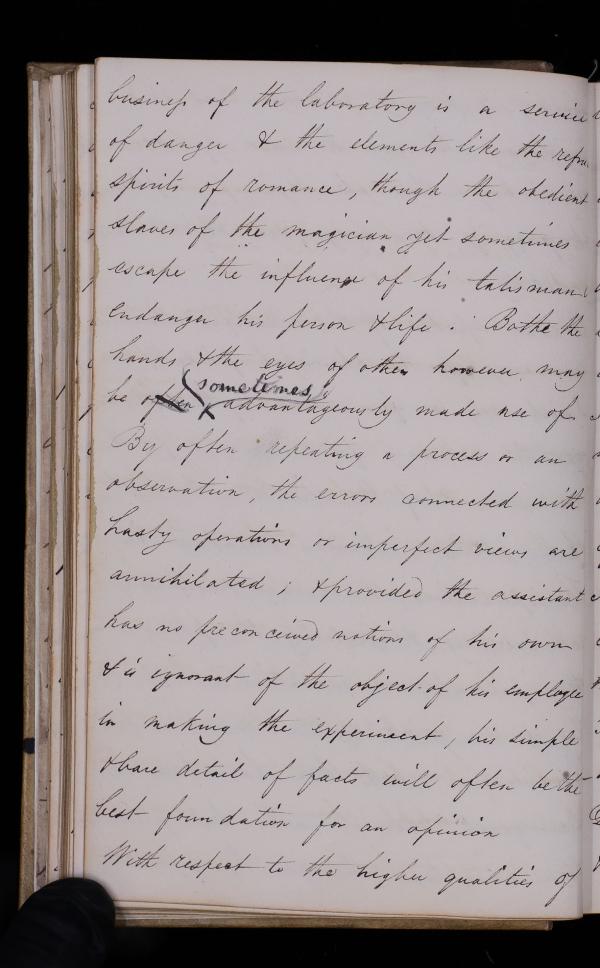 business of the laboratory is a service
of danger & the elements like the refra
spirits of romance, though the obedient
slaves of the magician yet sometimes
escape the influence of his talisman &
endanger his person & life. Bothe the
hands & the eyes of others however may
be often sometimes advantageously made use of
By often repeating a process or an
observation, the errors connected with
hasty operations or imperfect views are
annihilated; & provided the assistant
has no preconceived notions of his own
& is ignorant of the object of his employer
in making the experiment, his simple
& bare detail of facts will often be the
best foundation for an opinion
With respect to the higher qualities of